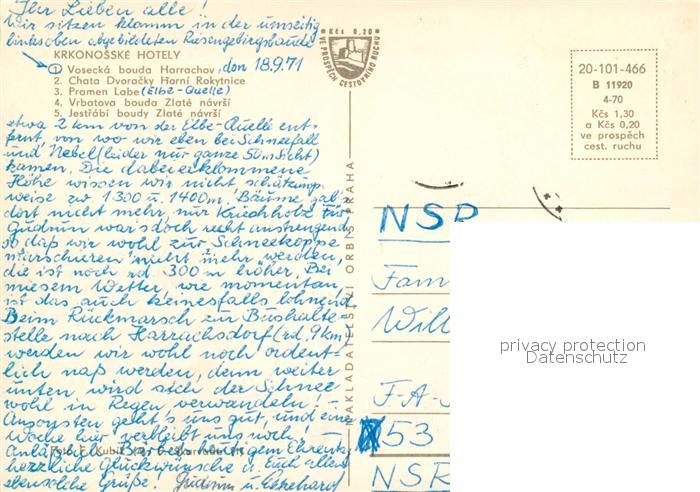 Ihr Lieben alle!
Wir sitzen klamm in der umseitig
links oben abgebildeten Riesengebirgsbaude
KRKONOŠSKÉ HOTELY
1 Vosecká bouda Harrachov, den 18.9.71
2. Chata Dvoračky Horní Rokytnice
3. Pramen Labe (Elbe-Quelle)
4. Vrbatova bouda Zlaté návrší
5. Jestřábí boudy Zlaté návrší
etwa 2 km von der Elbe-Quelle ent-
fernt, von wo wir eben bei Schneefall
und Nebel (leider nur ganze 50 m Sicht)
kamen. Die dabei erklommene
Höhe wissen wir nicht, schätzungs-
weise zw 1300 u. 1400m. Bäume gab's
dort nicht mehr, nur Kriechholz. Für
Gudrun war's doch recht anstrengend,
so daß wir wohl zur Schneekoppe
marschieren nicht mehr werden,
die ist noch rd. 300 m höher. Bei
miesem Wetter, wie momentan,
ist das auch keinesfalls lohnend.
Beim Rückmarsch zur Bushalte-
stelle nach Harrachsdorf (rd. 9 km)
werden wir wohl noch ordent-
lich naß werden, denn weiter
unten wird sich der Schnee
wohl in Regen verwandeln! -
Ansonsten geht's uns gut, und eine
Woche hier verbleibt uns noch.
Foto: F. Kubík
herzliche Glückwünsche u. Euch allen
ebensolche Grüße! Gudrun u. Ekkehard
Kčs 0,20
VE PROSPĚCH CESTOVNÍHO RUCHU
NAKLADATELSTVÍ ORBIS PRAHA
20-101-466
B 11920
4-70
Kčs 1,30
a Kčs 0,20
ve prospěch
cest. ruchu
NSR
Fam
Will
F-A-
53
NSR
privacy protection
Datenschutz